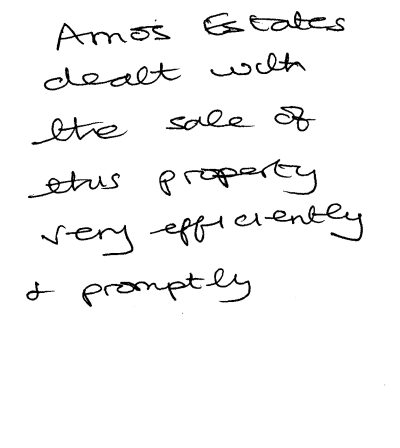 Amos Estates
dealt with
the sale of
this property
very efficiently
& promptly